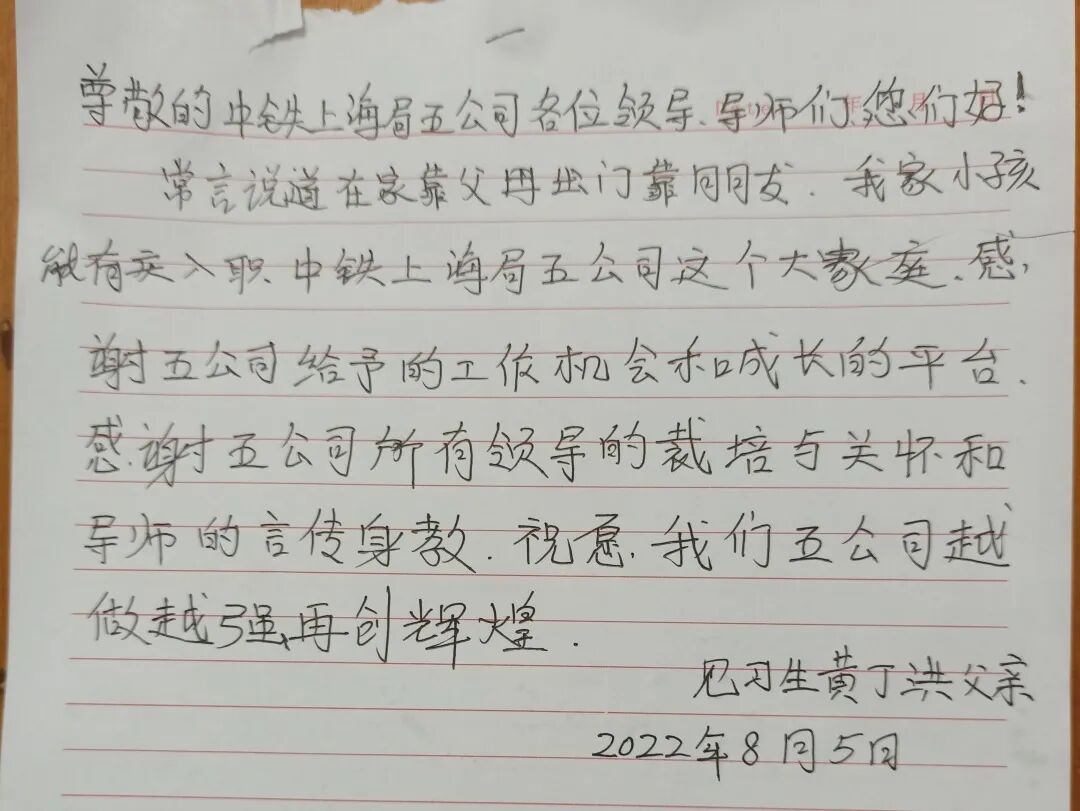 尊敬的中铁上海局五公司各位领导、导师们,您们好!
常言说道在家靠父母出门靠朋友.我家小孩
能有幸入职中铁上海局五公司这个大家庭、感
谢五公司给予的工作机会和成长的平台.
感谢五公司所有领导的裁培与关怀和
导师的言传身教.祝愿,我们五公司越
做越强,再创辉煌.
见习生黄丁洪父亲
2022年8月5日